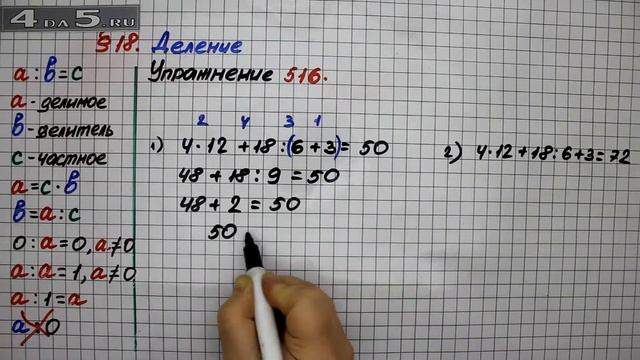 4 да 5.ru
§18. Деление
Упражнение 516.
a : b = c
a - делимое
b - делитель
c - частное
a = c · b
b = a : c
0 : a = 0, a ≠ 0
a : a = 1, a ≠ 0
a : 1 = a
a : 0
2 4 3 1
1) 4 · 12 + 18 : (6 + 3) = 50
48 + 18 : 9 = 50
48 + 2 = 50
50
2) 4 · 12 + 18 : 6 + 3 = 72